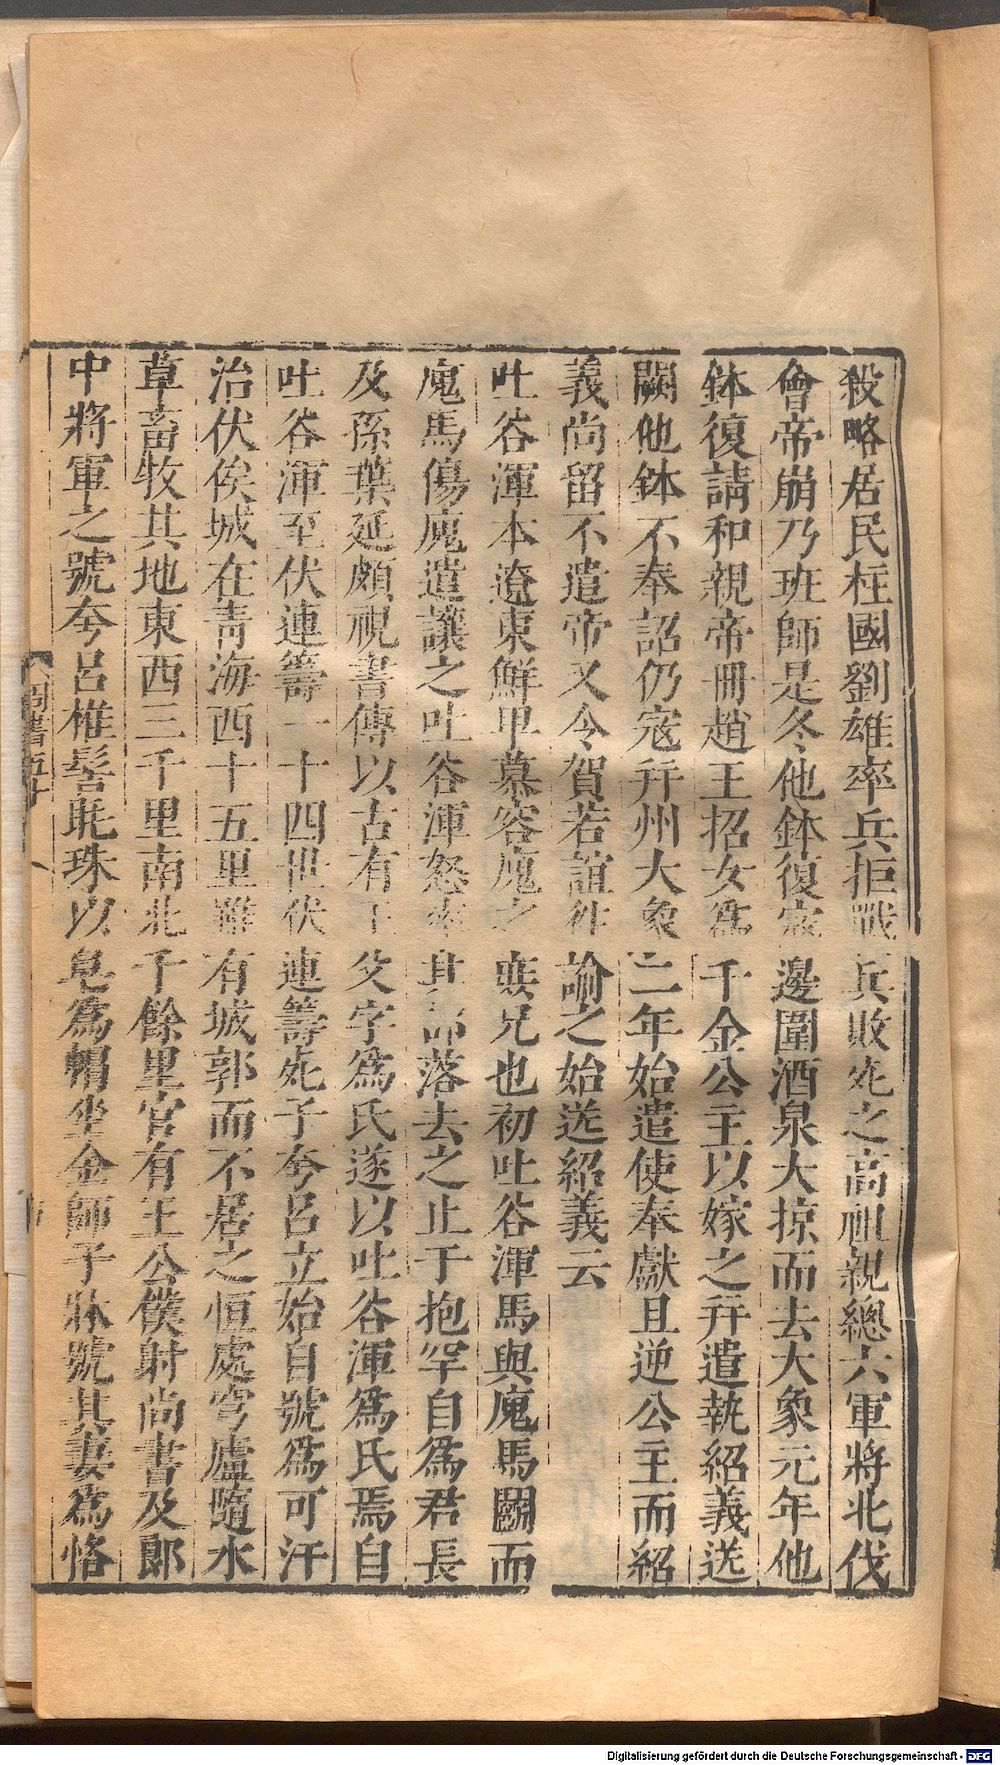 殺略居民柱國劉雄率兵拒戰兵敗死之高祖親總六軍將北伐
會帝崩乃班師是冬他鉢復寇邊圍酒泉大掠而去大象元年他
鉢復請和親帝冊趙王招女爲千金公主以嫁之幷遣執紹義送
闕他鉢不奉詔仍寇幷州大象二年始遣使奉獻且逆公主而紹
義尚留不遣帝又令賀若誼往諭之始送紹義云
吐谷渾本遼東鮮卑慕容廆之庶兄也初吐谷渾馬與廆馬鬬而
廆馬傷廆遣讓之吐谷渾怒率其部落去之止于抱罕自爲君長
及孫葉延頗視書傳以古有王父字爲氏遂以吐谷渾爲氏焉自
吐谷渾至伏連籌一十四世伏連籌死子夸呂立始自號爲可汗
治伏俟城在青海西十五里雖有城郭而不居之恒處穹廬隨水
草畜牧其地東西三千里南北千餘里官有王公僕射尚書及郎
中將軍之號夸呂椎髻毦珠以皂爲帽坐金師子牀號其妻爲恪
周書五十
八
Digitalisierung gefördert durch die Deutsche Forschungsgemeinschaft - DFG